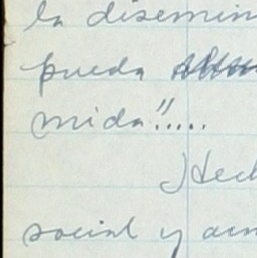 la disemin
pueda
mida"!....
Hech
social y am